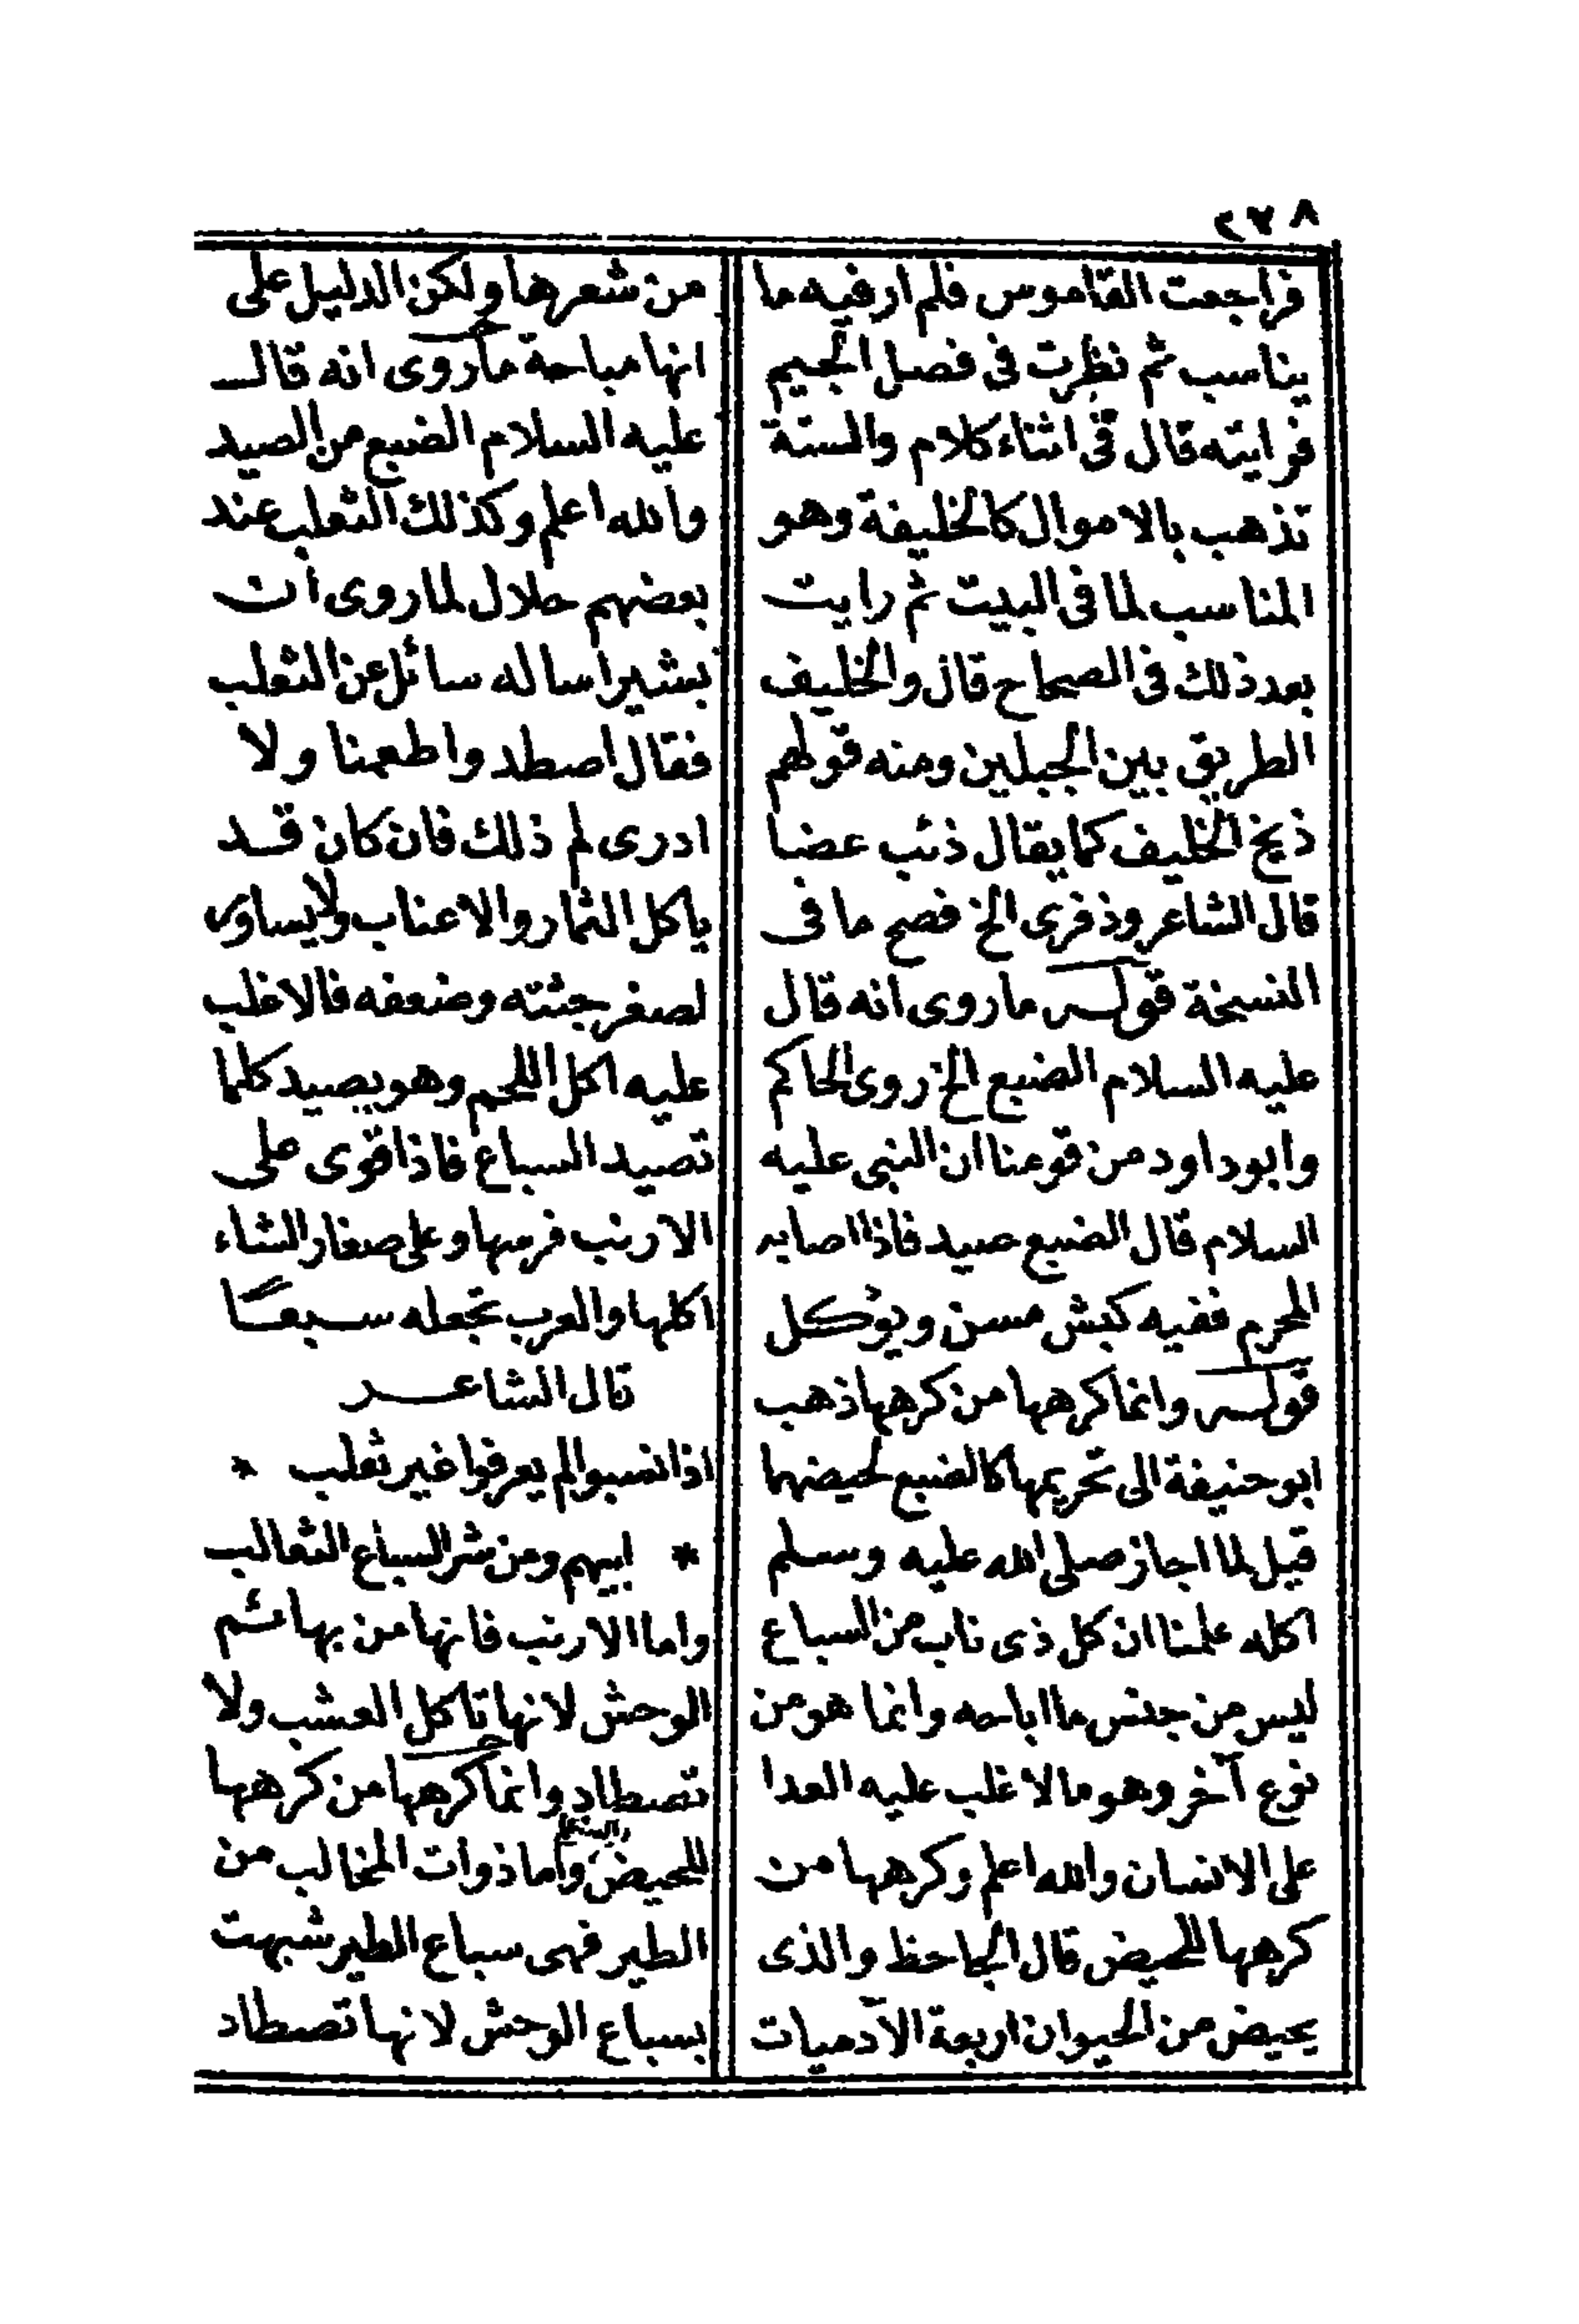 ٢٧٨
فراجعت القاموس فلم ار فيه ما
يناسب ثم نظرت فى فصل الجيم
فرايته قال فى اثناء كلام والسنة
تذهب بالاموال كالخليفة وهو
المناسب لما فى البيت ثم رايت
بعد ذلك فى الصحاح قال والخليف
الطريق بين الجبلين ومنه قولهم
ذيخ الخليف كما يقال ذئب عضا
قال الشاعر وذفرى الخ فصح ما فى
النسخة قولـه ما روى انه قال
عليه السلام الضبع الخ روى الحاكم
وابو داود من قومنا ان النبى عليه
السلام قال الضبع صيد فاذا اصابه
المحرم ففيه كبش مسن ويؤكل
قولـه وانما كرهها من كرهها ذهب
ابو حنيفة الى تحريمها كالضبع لحيضهما
قيل لما اجاز صلى الله عليه وسلم
اكله علمنا ان كل ذى ناب من السباع
ليس من جنس ما اباحه وانما هو من
نوع آخر وهو مالا غلب عليه العدا
على الانسان والله اعلم وكرهها من
كرهها للحيض قال الجاحظ والذى
يحيض من الحيوان اربعة الآدميات
من شعرها ولكن الدليل على
انها مباحة ما روى انه قال
عليه السلام الضبع من الصيد
والله اعلم وكذلك الثعلب عند
بعضهم حلال لما روى ان
بشيرا ساله سائل عن الثعلب
فقال اصطد واطعمنا ولا
ادرى لم ذلك فان كان قد
ياكل الثمار والاعناب ولا يساوى
لصغر جثته وضعفه فالاغلب
عليه اكل اللحم وهو يصيد كلما
تصيد السباع فاذا قوى على
الارنب فرسها وعلى صغار الشاء
اكلها والعرب تجعله سبعًا
قال الشاعر
اذا نسبوا لم يعرفوا غير ثعلب *
* ابيهم ومن شر السباع الثعالب
واما الارنب فانها من بهائم
الوحش لانها تاكل العشب ولا
تصطاد وانما كرهها من كرهها
للحيض واما ذوات المخالب من
الطير فهى سباع الطير شبهت
بسباع الوحش لانها تصطاد